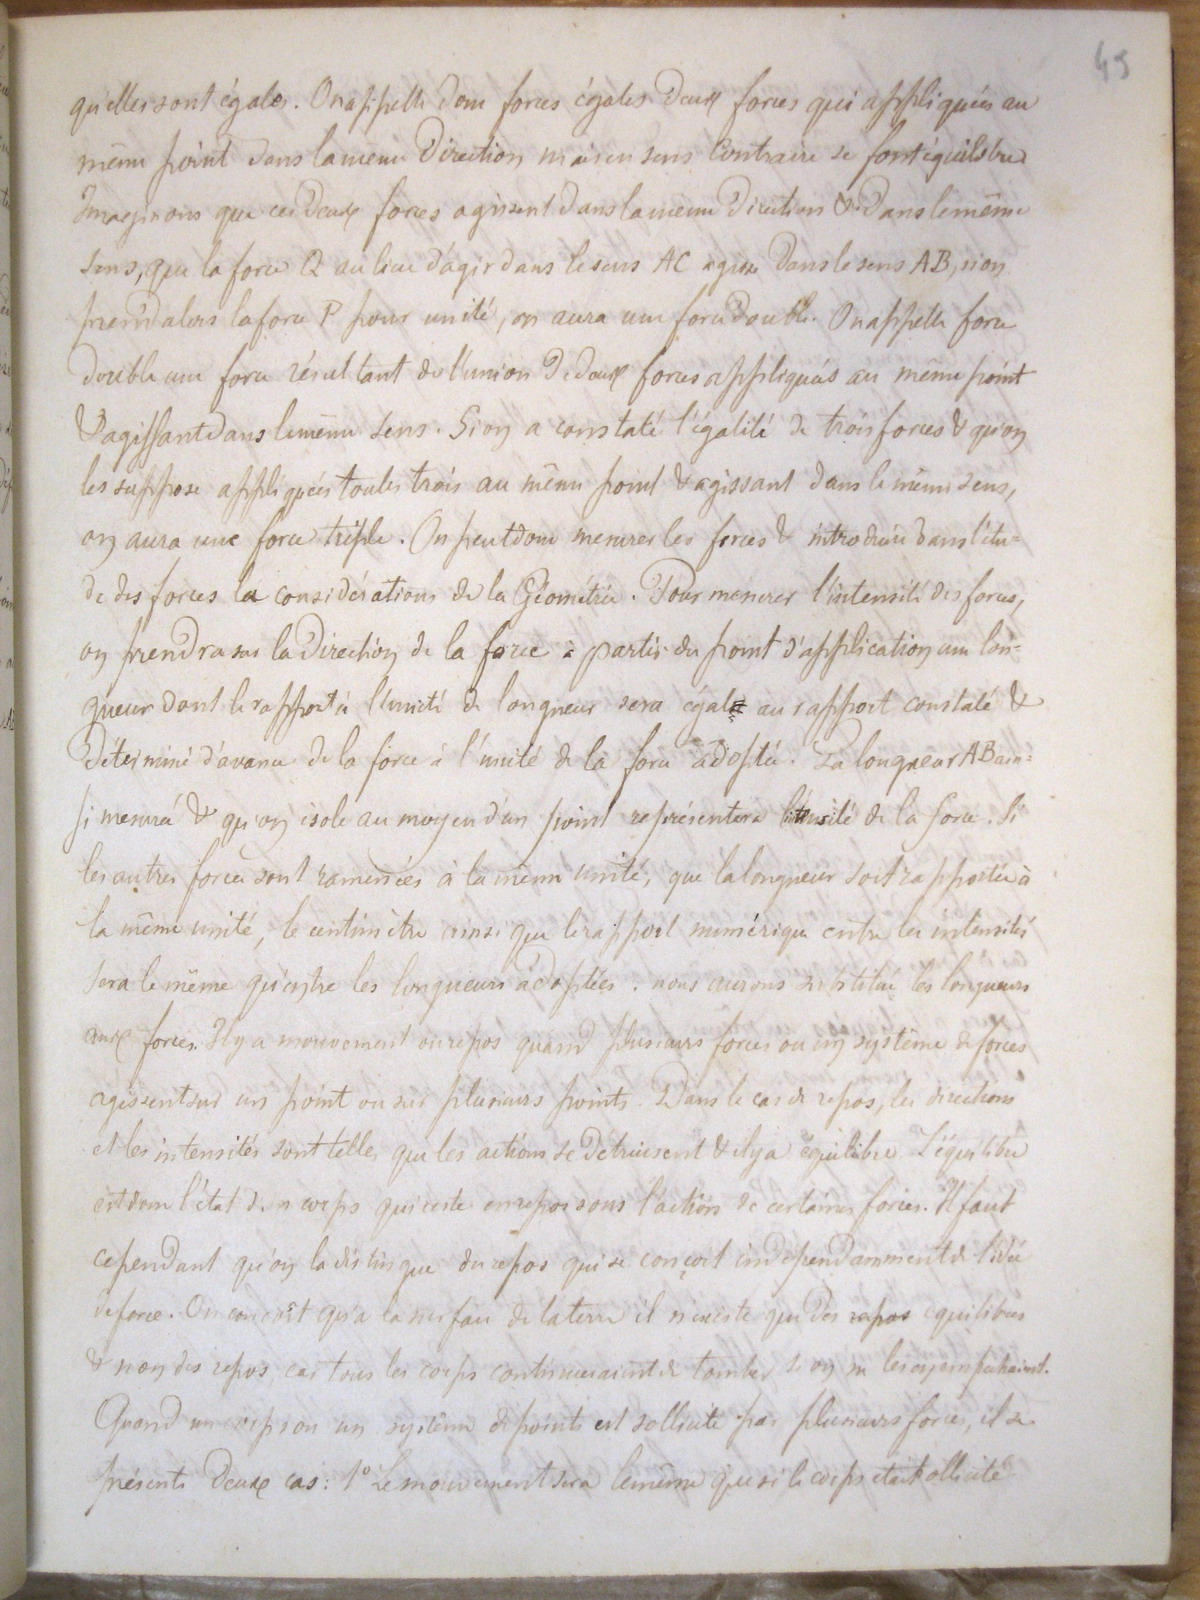 49
qu'elles sont égales. On appelle donc forces égales deux forces qui appliquées au
même point dans la même direction mais en sens contraire se font équilibre
Imaginons que ces deux forces agissent dans la même direction & dans le même
sens, que la force Q au lieu d'agir dans le sens AC agisse dans le sens AB, si on
prend alors la force P pour unité, on aura une force double. On appelle force
double une force résultant de l'union de deux forces appliquées au même point
& agissant dans le même sens. Si on a constaté l'égalité de trois forces & qu'on
les suppose appliquées toutes trois au même point & agissant dans le même sens,
on aura une force triple. On peut donc mesurer les forces & introduire dans l'étu=
de des forces la considérations de la Géométrie. Pour mesurer l'intensité des forces,
on prendra sur la direction de la force à partir du point d'application une lon=
gueur dont le rapport à l'unité de longueur sera égal au rapport constaté &
déterminé d'avance de la force à l'unité de la force adoptée. La longueur AB ain=
si mesurée & qu'on isole au moyen d'un point représentera l'intensité de la force. Si
les autres forces sont ramenées à la même unité, que la longueur soit rapportée à
la même unité, le centimètre ainsi que le rapport numérique entre les intensités
sera le même qu'entre les longueurs adoptées : nous aurons substitué les longueurs
aux forces. Il y a mouvement ou repos quand plusieurs forces ou un système de forces
agissent sur un point ou sur plusieurs points. Dans le cas de repos, les directions
et les intensités sont telles que les actions se détruisent & il y a équilibre. L'équilibre
est donc l'état d'un corps qui reste en repos sous l'action de certaines forces. Il faut
cependant qu'on la distingue du repos qui se conçoit indépendamment de l'idée
de force. On conçoit qu'à la surface de la terre il n'existe que des repos équilibres
& non des repos, car tous les corps continueraient de tomber si on ne les en empêchaient.
Quand un corps ou un système de points est sollicité par plusieurs forces, il se
présente deux cas : 1° Le mouvement sera le même que si le corps était sollicité